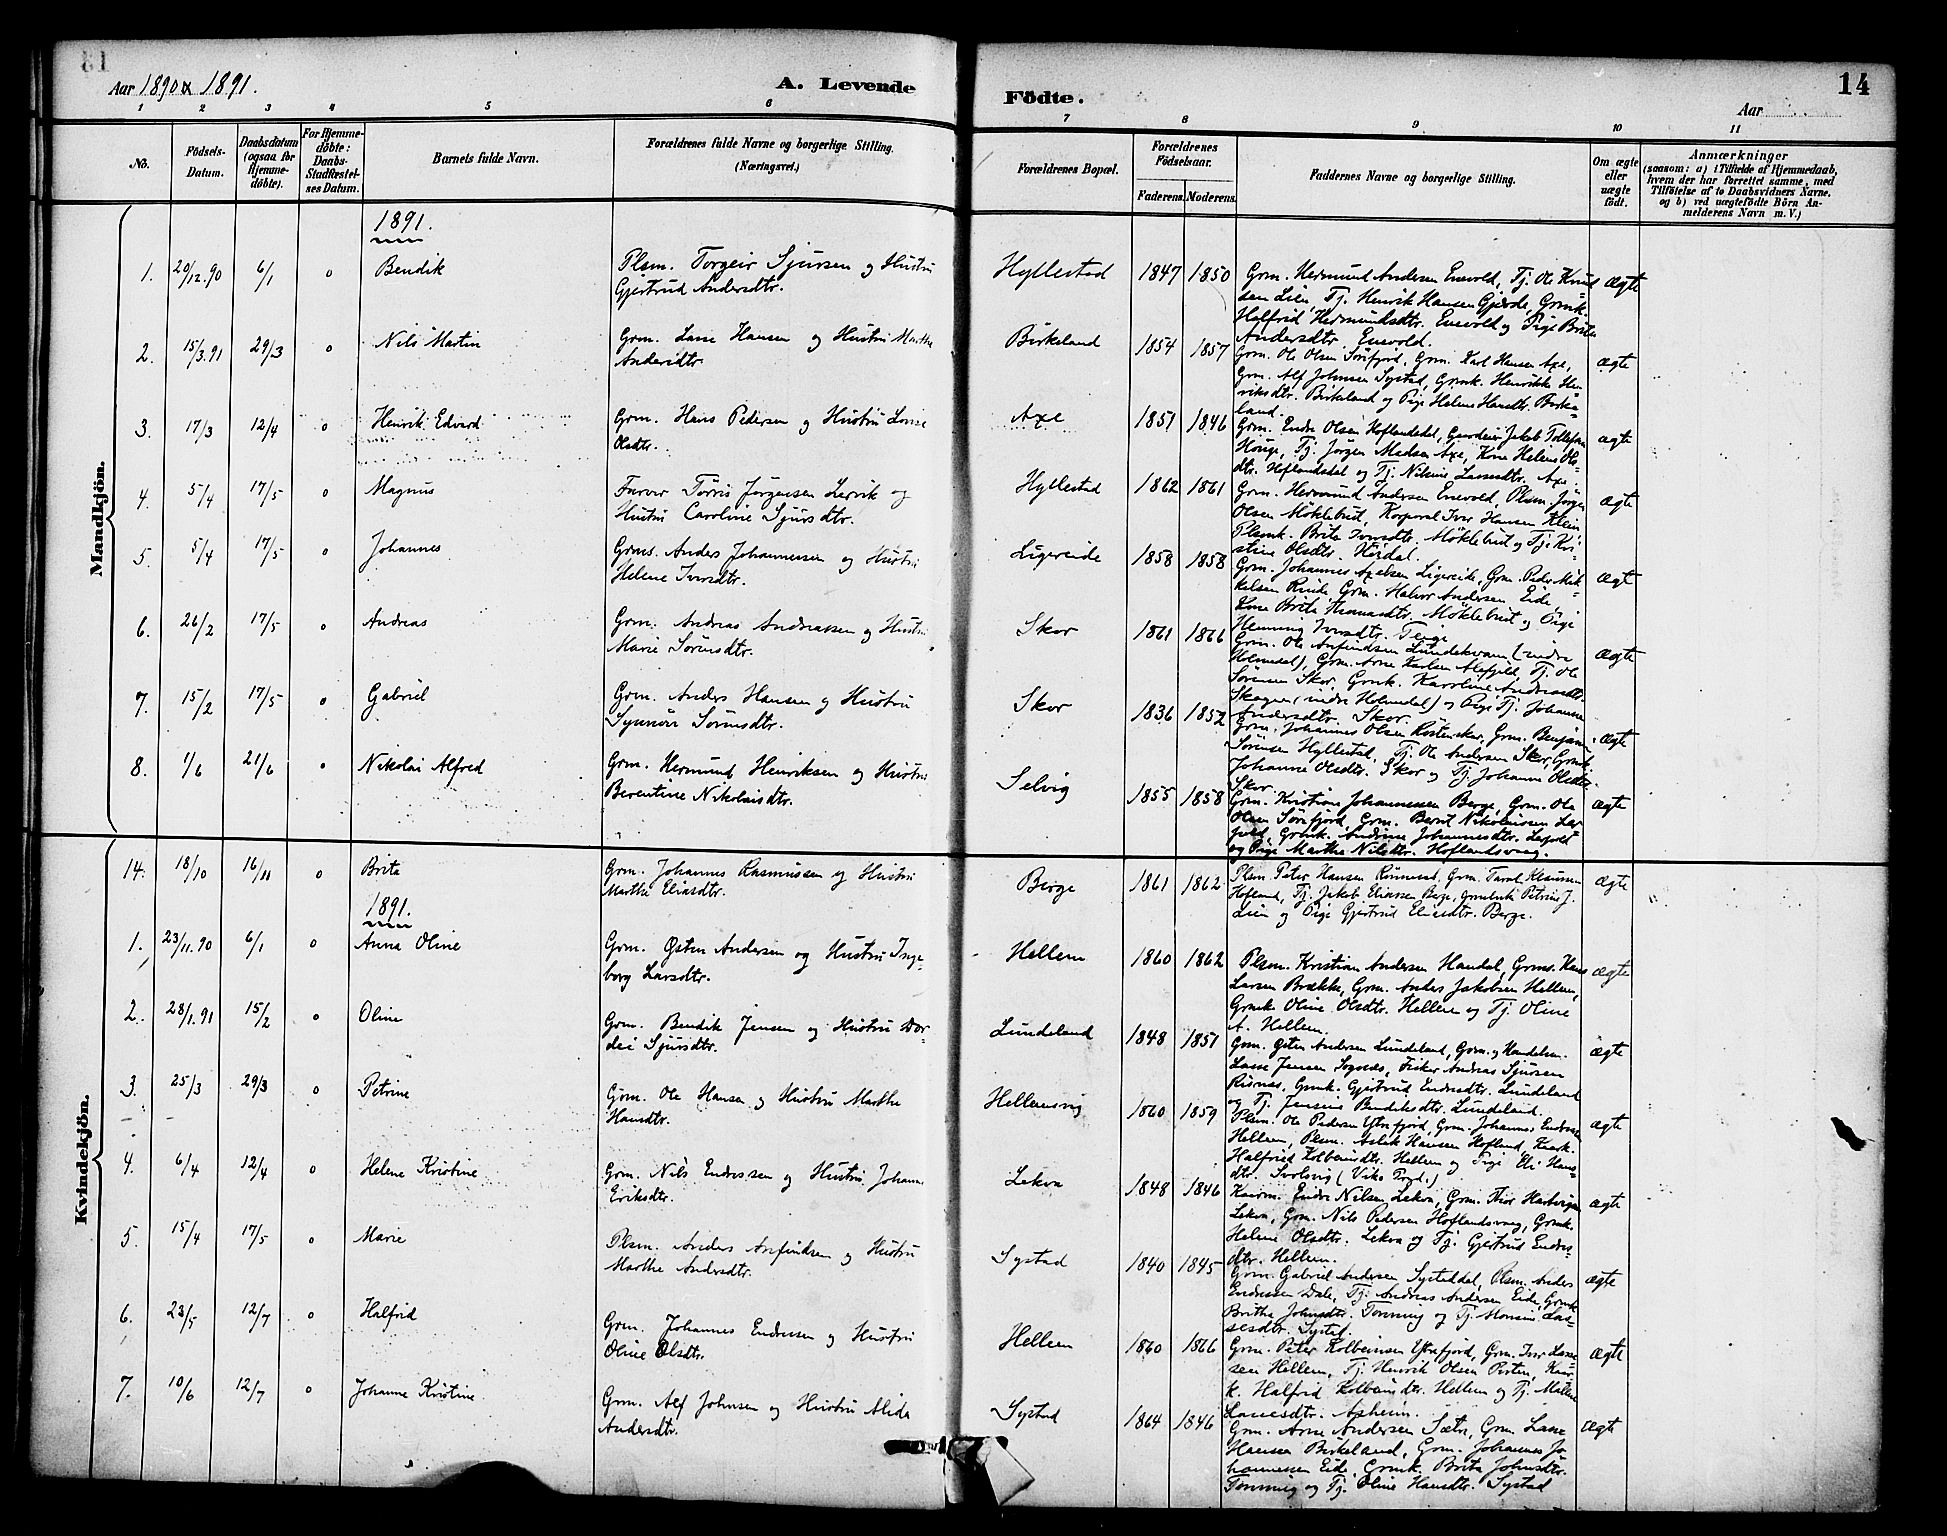 Aar 1890 & 1891.
A. Levende
Födte.
14
Aar
1 2 3 4 5 6 7 8 9 10 11
No.
Födsels-
Datum.
Daabsdatum
(ogsaa for
Hjemme-
döbte).
For Hjemme-
döbte:
Daabs-
Stadfæstel-
ses Datum.
Barnets fulde Navn.
Forældrenes fulde Navne og borgerlige Stilling.
(Næringsvei.)
Forældrenes Bopæl.
Forældrenes
Födselsaar.
Faderens. Moderens.
Faddernes Navne og borgerlige Stilling.
Om ægte
eller
uægte
födt.
Anmærkninger
(saasom: a) i Tilfælde af Hjemmedaab,
hvem der har forrettet samme, med
Tilföielse af to Daabsvidners Navne.
og b) ved uægtefödte Börn An-
melderens Navn m. V.)
Mandkjön.
1891.
1. 20/12.90 6/1 o Bendik
Plsm. Torgeir Sjursen og Hustru
Gjertrud Andersdtr.
Hyllestad 1847 1850
Grm. Hermund Andersen Enevold, Tj. Ole Knud
sen Lien, Tj. Henrik Hansen Gjerde, Grmk.
Halfrid Hermundsdtr. Enevold og Pige Brita
Andersdtr. Enevold.
ægte
2. 15/3.91 29/3 o Nils Martin
Grm. Lasse Hansen og Hustru Marthe
Andersdtr.
Birkeland 1854 1857
Grm. Ole Olsen Sörefjord, Grm. Karl Hansen Axe,
Grm. Alf Johnsen Systad, Grmk. Henrikke Hen
riksdtr. Birkeland og Pige Helene Hansdtr. Birke-
land.
ægte
3. 17/3 12/4 o Henrik Edvard
Grm. Hans Pedersen og Hustru Lovise
Olsdtr.
Axe 1851 1846
Grm. Endre Olsen Hoflandsdal, Jakob Tollefsen
Houge, Tj. Jörgen Madsen Axe, Kone Helene Ols-
dtr. Hoflandsdal og Tj. Nikoline Larsdtr. Axe.
ægte
4. 5/4 17/5 o Magnus
Törris Jörgensen Lervik og
Hustru Caroline Sjursdtr.
Hyllestad 1862 1861
Grm. Hermund Andersen Enevold, Plsm. Jörgen
Olsen Möklebust, Korporal Iver Hansen Klein
Plsmk. Brita Iversdtr. Möklebust og Tj. Kri-
stine Olsdtr. Hordal.
ægte
5. 5/4 17/5 o Johannes
Grms. Anders Johannessen og Hustru
Helene Iversdtr.
Ligereide 1858 1858
Grm. Johannes Axelsen Ligereide, Grm. Peder Mik-
kelsen Rinde, Grm. Halvor Andersen Eide,
Kone Brita Thomasdtr. Möklebust og Pige
Hemming Iversdtr.
ægte
6. 26/2 17/5 o Andreas
Grm. Andreas Andreassen og Hustru
Marie Sörensdtr.
Skor 1861 1866
Grm. Ole Anfindsen Lundekvam (indre
Holmedal), Grm. Arne Karlsen Alefjeld, Tj. Ole
Sörensen Skor, Grmk. Karoline Andreasdtr.
(indre Holmedal) og Pige Tj. Johanne
Andersdtr. Skor.
Ægte
7. 15/2 17/5 o Gabriel
Grm. Anders Hansen og Hustru
Synnöve Sörensdtr.
Skor 1836 1852
Grm. Johannes Olsen, Grm. Benjamin
Sörensen Hyllestad, Tj. Ole Andersen Skor, Grmk.
Johanne Olsdtr. Skor og Tj. Johanne Olsdtr.
Skor.
ægte
8. 1/6 21/6 o Nikolai Alfred
Grm. Hermund Henriksen og Hustru
Berentine Nikolaisdtr.
Selvig 1855 1858
Grm. Kristian Johannessen Berge, Grm. Ole
Olsen Sörefjord Grm. Bernt Nikolaisen Lep
pold, Grmk. Andrine Johannesdtr. Leppold
og Pige Marthe Nilsdtr. Hoflandsvaag.
ægte
Kvindekjön.
14. 18/10 16/11 o Brita
Grm. Johannes Rasmussen og Hustru
Marthe Eliasdtr.
Berge 1861 1862
Plsm. Peter Hansen Risnesed, Grm. Tarald Klausen
Hofland, Tj. Jakob Eliassen Berge, Petrine J.
Lien og Pige Gjertrud Eliasdtr. Berge.
Ægte
1891.
1. 23/11.90 6/1 o Anna Oline
Grm. Östen Andersen og Hustru Inge-
borg Larsdtr.
Hellem 1860 1862
Plsm. Kristian Andersen Handal, Grms. Hans
Larsen Brække, Grm. Anders Jakobsen Hellem,
Grmk. Oline Olsdtr. Hellem og Tj. Oline
A. Hellem.
ægte
2. 28/1.91 15/2 o Oline
Grm. Bendik Jensen og Hustru Dor-
dei Sjursdtr.
Lundeland 1848 1851
Grm. Östen Andersen Lundeland, Grm. og Handelsm.
Lasse Jensen Sognnes, Fisker Andreas Sjursen
Risnæs, Grmk. Gjertrud Endresdtr. Lundeland
og Tj. Jensine Bendiksdtr. Lundeland.
ægte
3. 25/3 29/3 o Petrine
Grm. Ole Hansen og Hustru Marthe
Hansdtr.
Hellemsvig 1860 1859
Plsm. Ole Pedersen Ytrefjord, Grm. Johannes Endresen
Hellem, Plsm. Aslak Hansen Hofland, Kaark.
Halfrid Kolbeinsdtr. Hellem og Pige Eli Hans
dtr. Svolsvig (Viks Prgd.)
ægte
4. 6/4 12/4 o Helene Kristine
Grm. Nils Endresen og Hustru Johanne
Eriksdtr.
Lekva 1848 1846
Kaarm. Endre Nilsen Lekva, Grm. Thor Hartvigsen
Lekva, Grm. Nils Pedersen Hoflandsvaag, Grmk.
Helene Olsdtr. Lekva og Tj. Gjertrud Endres
dtr. Hellem.
ægte
5. 15/4 17/5 o Marie
Plsm. Anders Anfindsen og Hustru
Marthe Andersdtr.
Systad 1840 1845
Grm. Gabriel Andersen Systaddal, Plsm. Anders
Endresen Dale, Tj. Andreas Andersen Eide, Grmk.
Britha Johnsdtr. Tonning og Tj. Monsine Las-
sesdtr. Systad.
ægte
6. 23/5 12/7 o Halfrid
Grm. Johannes Endresen og Hustru
Oline Olsdtr.
Hellem 1860 1866
Grm. Peter Kolbeinsen Ytrefjord, Grm. Iver Lasse
sen Hellem, Tj. Henrik Olsen Risten, Kaar-
k. Halfrid Kolbeinsdtr. Hellem og Tj. Malene
Lassesdtr. Asheim.
ægte
7. 10/6 12/7 o Johanne Kristine
Grm. Alf Johnsen og Hustru Alida
Andersdtr.
Systad 1864 1846
Grm. Arne Andersen Sætre, Grm. Lasse
Hansen Birkeland, Grm. Johannes Jo
hannessen Eide, Grmk. Brita Johnsdtr.
Tonning og Tj. Oline Hansdtr. Systad
Ægte